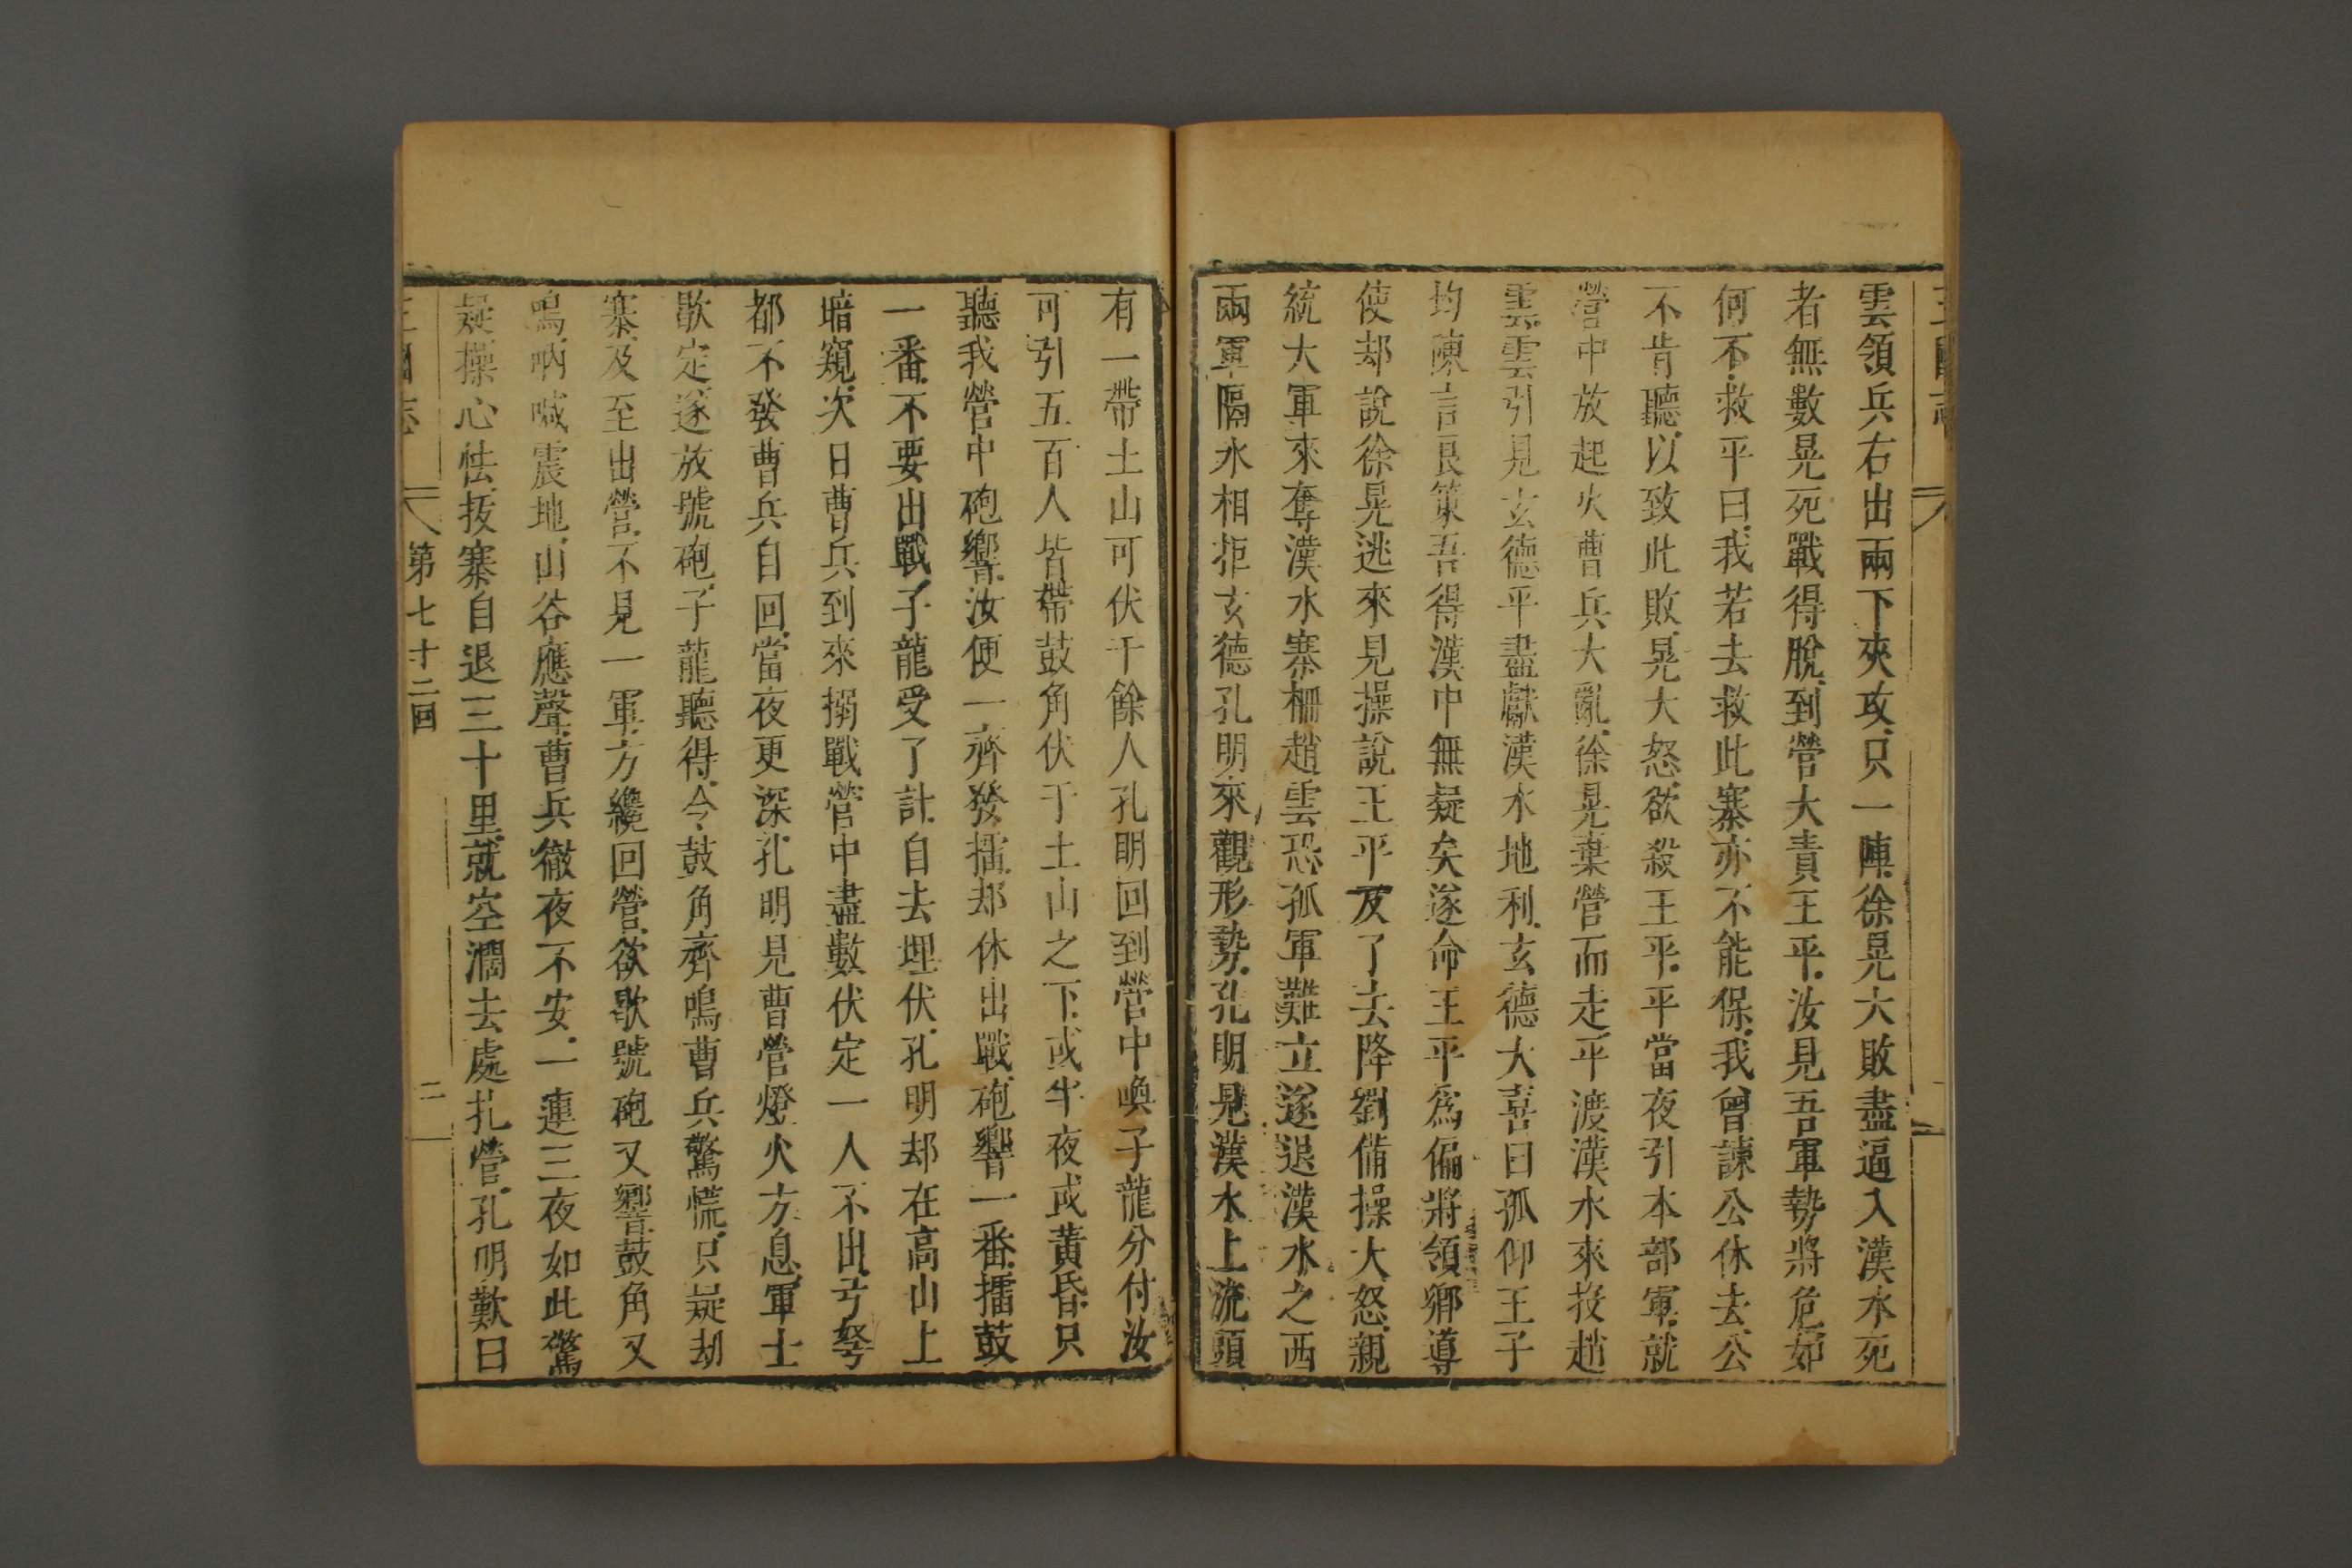 三國志
雲領兵右出兩下夾攻只一陣徐晃大敗盡逼入漢水死
者無數晃死戰得脫到營大責王平汝見吾軍勢將危如
何不救平曰我若去救此寨亦不能保我曾諫公休去公
不肯聽以致此敗晃大怒欲殺王平平當夜引本部軍就
營中放起火曹兵大亂徐晃棄營而走平渡漢水來投趙
雲雲引見玄德平盡獻漢水地利玄德大喜曰孤仰王子
均陳言良策吾得漢中無疑矣遂命王平為偏將領鄉導
使却說徐晃逃來見操說王平反了去降劉備操大怒親
統大軍來奪漢水寨柵趙雲恐孤軍難立遂退漢水之西
兩軍隔水相拒玄德孔明來觀形勢孔明見漢水上流頭
有一帶土山可伏千餘人孔明回到營中喚子龍分付汝
可引五百人皆帶鼓角伏于土山之下或半夜或黃昏只
聽我營中砲響汝便一齊發擂却休出戰砲響一番擂鼓
一番不要出戰子龍受了計自去埋伏孔明却在高山上
暗窺次日曹兵到來搦戰營中盡數伏定一人不出弓弩
都不發曹兵自回當夜更深孔明見曹營燈火方息軍士
歇定遂放號砲子龍聽得令鼓角齊鳴曹兵驚慌只疑劫
寨及至出營不見一軍方纔回營欲歇號砲又響鼓角又
鳴吶喊震地山谷應聲曹兵徹夜不安一連三夜如此驚
疑操心怯拔寨自退三十里就空濶去處扎營孔明歎曰
三國志 第七十二回 二